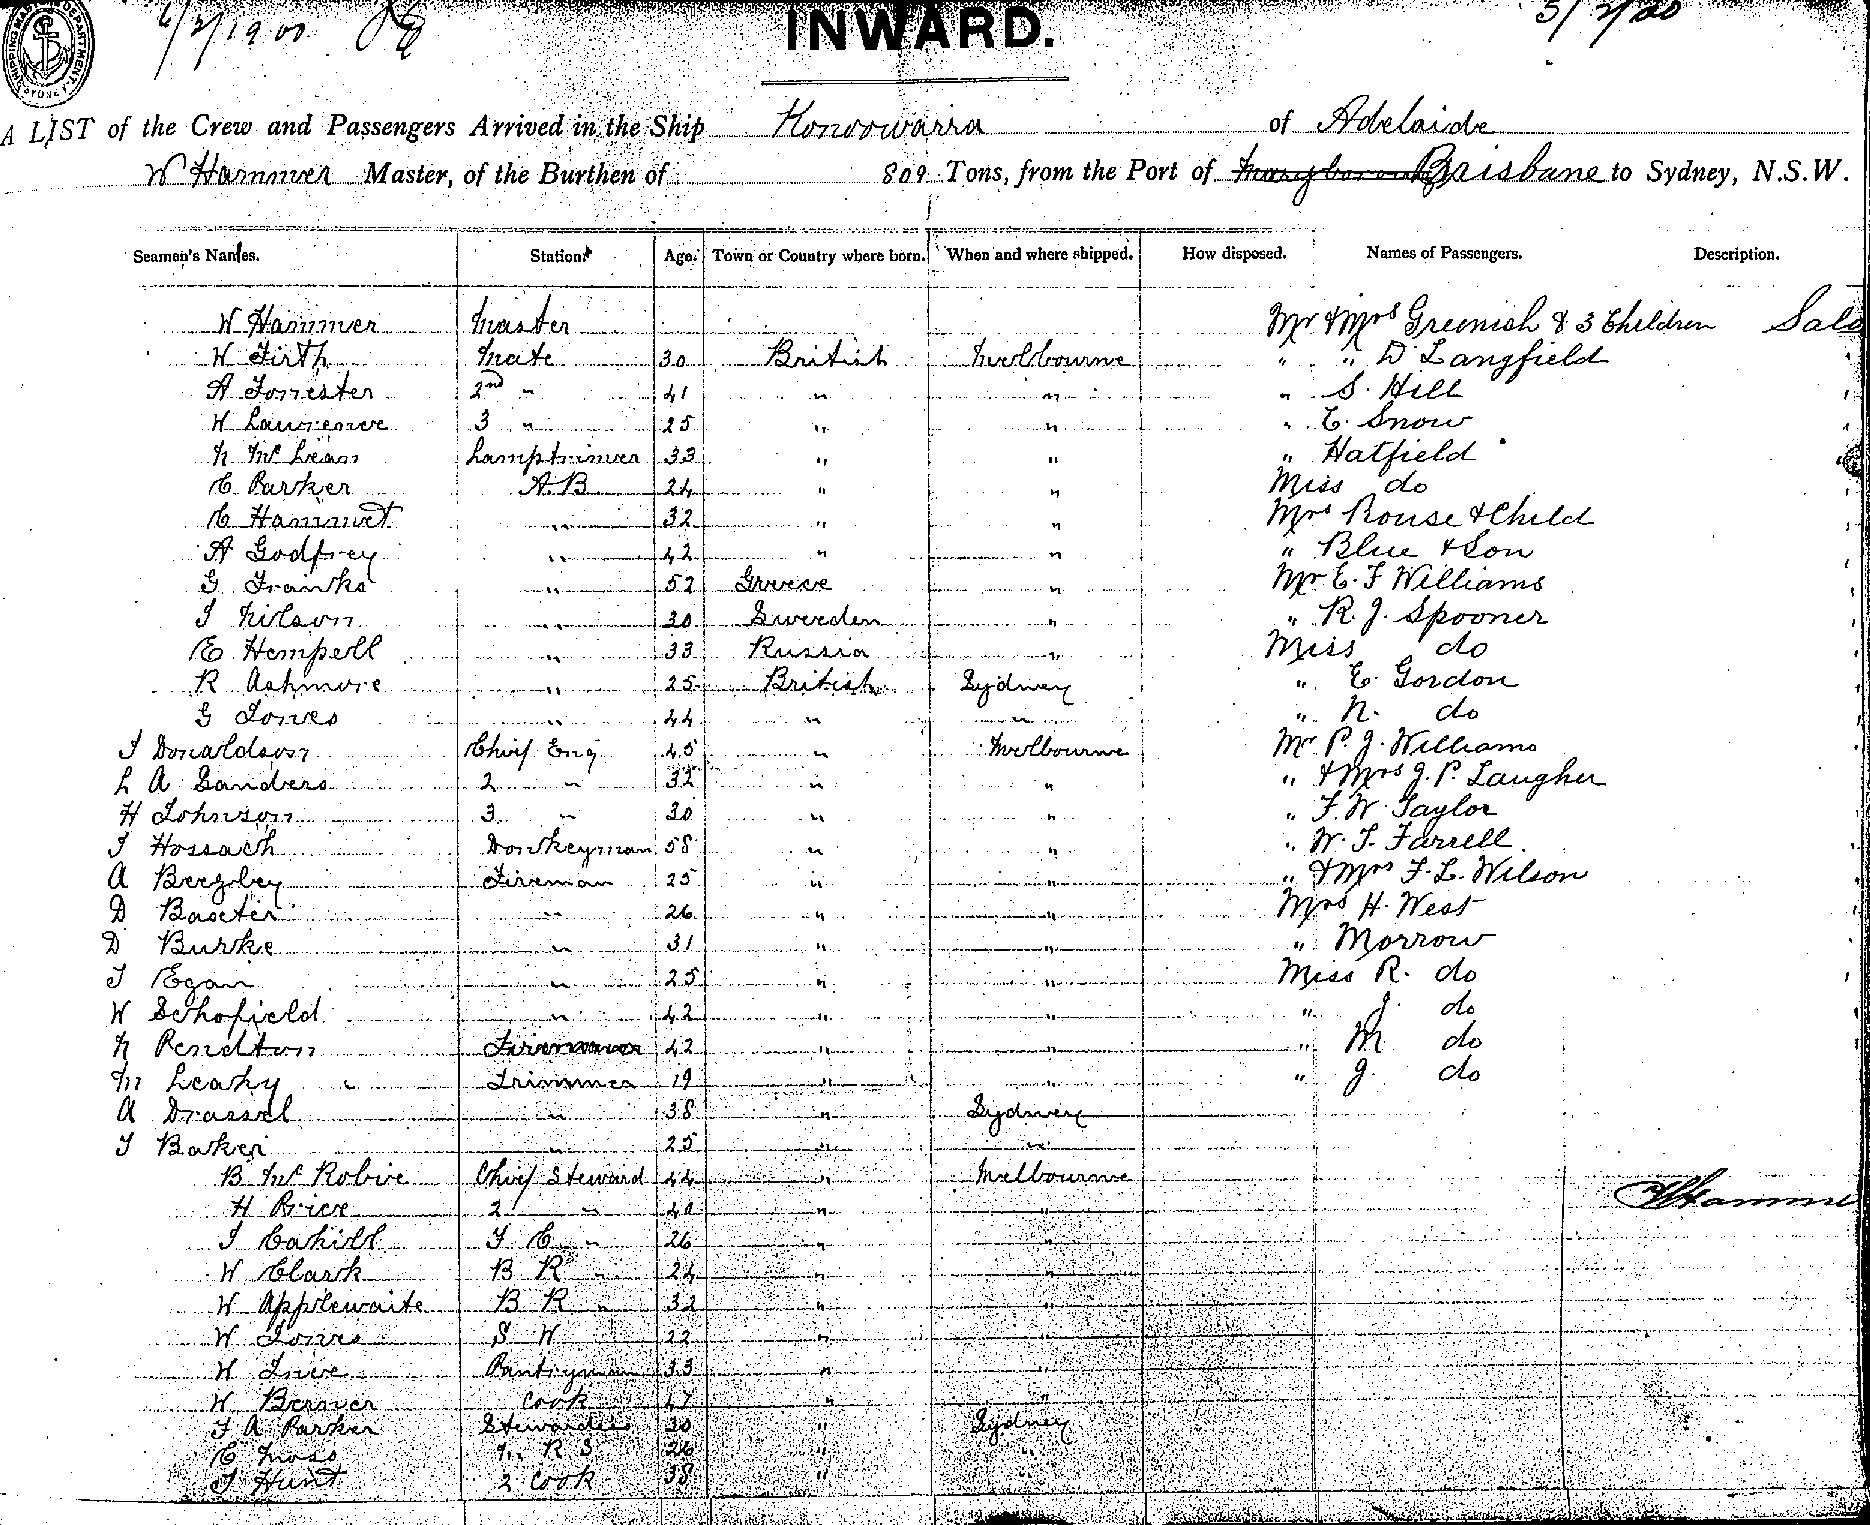 6/2/1900
5/2/00
SHIPPING MASTER'S DEPARTMENT. SYDNEY
INWARD.
A LIST of the Crew and Passengers Arrived in the Ship Konoowarra of Adelaide
W Hammer Master, of the Burthen of 809 Tons, from the Port of Maryborough Brisbane to Sydney, N.S.W.
Seamen's Names. Station. Age. Town or Country where born. When and where shipped. How disposed. Names of Passengers. Description.
W Hammer Master Mr & Mrs Greenish & 3 Children Salo
W Firth Mate 30 British Melbourne " " D Langfield
A Forrester 2nd " 41 " " " S. Hill
W Lawrence 3 " 25 " " " E. Snow
N McLean Lamptrimer 33 " " " Hatfield
E Parker A.B 24 " " Miss do
E Hammet " 32 " " Mrs Rouse & Child
A Godfrey " 42 " " " Blue & Son
G Franks " 52 Greece " Mr E. F Williams
J Nilson " 30 Sweeden " " R. J. Spooner
E Hempell " 33 Russia " Miss do
R Ashmore " 25 British Sydney " E. Gordon
G Jones " 44 " " " N. do
J Donaldson Chief Eng 45 " Melbourne Mr P. J. Williams
L A Sanders 2 " 32 " " " & Mrs J. P. Laugher
H Johnson 3 " 30 " " " F. W. Taylor
J Hossach Donkeyman 58 " " " W. J. Farrell
A Beegley Fireman 25 " " " & Mrs F. L. Wilson
D Baxter " 26 " " Mrs H. West
D Burke " 31 " " " Morrow
J Egan " 25 " " Miss R. do
W Schofield " 42 " " " J. do
N Rendton Fireman 42 " " " M do
M Leahy Trimmer 19 " " " J. do
A Drassel " 38 " Sydney
J Baker " 25 " "
B McRobie Chief Steward 44 " Melbourne
H Price 2 " 40 " " W Hamme
J Cahill F C " 26 " "
W Clark B R " 24 " "
W Applewaite B R " 32 " "
W Jones S W 22 " "
W Lowe Pantryman 33 " "
W Beaver Cook 47 " "
F A Parker Stewardes 30 " Sydney
E Moss M R S 26 " "
J Hunt 2 Cook 38 " "